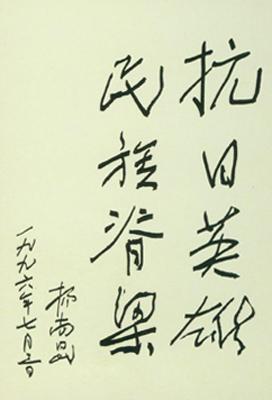 抗日英雄
民族脊梁
杨尚昆
一九九六年七月三日